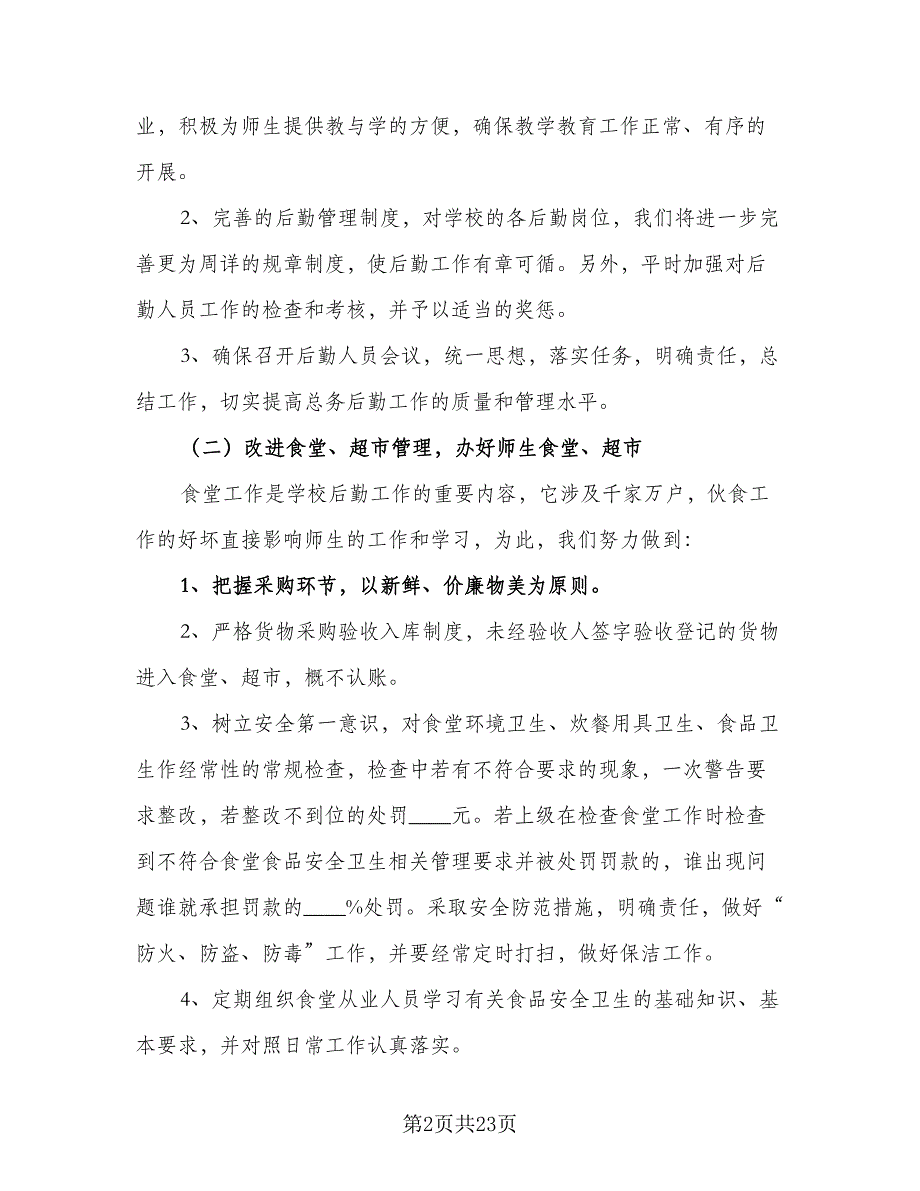 业，积极为师生提供教与学的方便，确保教学教育工作正常、有序的
开展。
2、完善的后勤管理制度，对学校的各后勤岗位，我们将进一步完
善更为周详的规章制度，使后勤工作有章可循。另外，平时加强对后
勤人员工作的检查和考核，并予以适当的奖惩。
3、确保召开后勤人员会议，统一思想，落实任务，明确责任，总
结工作，切实提高总务后勤工作的质量和管理水平。
（二）改进食堂、超市管理，办好师生食堂、超市
食堂工作是学校后勤工作的重要内容，它涉及千家万户，伙食工
作的好坏直接影响师生的工作和学习，为此，我们努力做到：
1、把握采购环节，以新鲜、价廉物美为原则。
2、严格货物采购验收入库制度，未经验收人签字验收登记的货物
进入食堂、超市，概不认账。
3、树立安全第一意识，对食堂环境卫生、炊餐用具卫生、食品卫
生作经常性的常规检查，检查中若有不符合要求的现象，一次警告要
求整改，若整改不到位的处罚____元。若上级在检查食堂工作时检查
到不符合食堂食品安全卫生相关管理要求并被处罚罚款的，谁出现问
题谁就承担罚款的____%处罚。采取安全防范措施，明确责任，做好“
防火、防盗、防毒”工作，并要经常定时打扫，做好保洁工作。
4、定期组织食堂从业人员学习有关食品安全卫生的基础知识、基
本要求，并对照日常工作认真落实。
第2页共23页